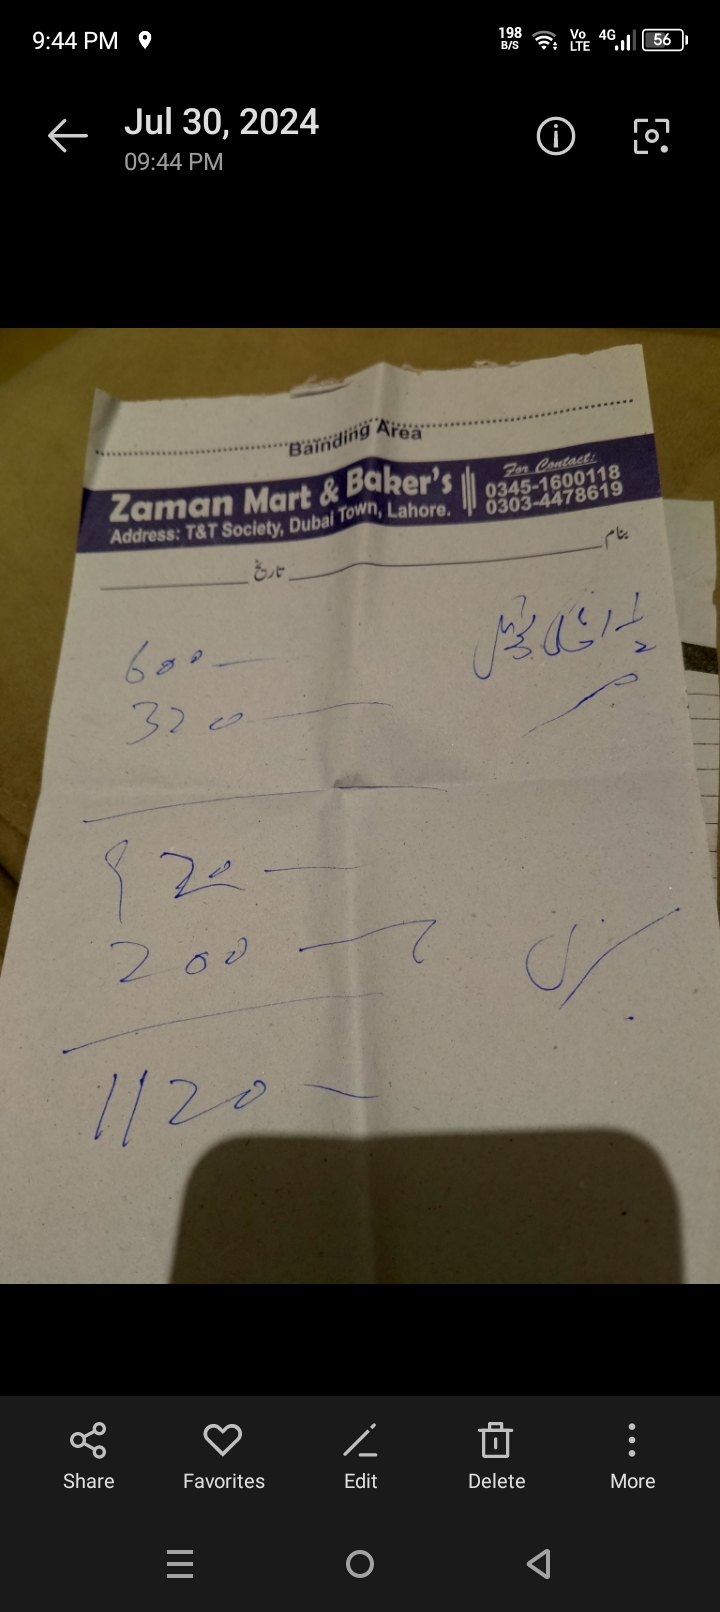 9:44 PM 198 B/S Vo LTE 4G 56
Jul 30, 2024
09:44 PM
Bainding Area
Zaman Mart & Baker's
Address: T&T Society, Dubai Town, Lahore.
For Contact:
0345-1600118
0303-4478619
بنام
تاریخ
600
320
920
200
1120
Share Favorites Edit Delete More